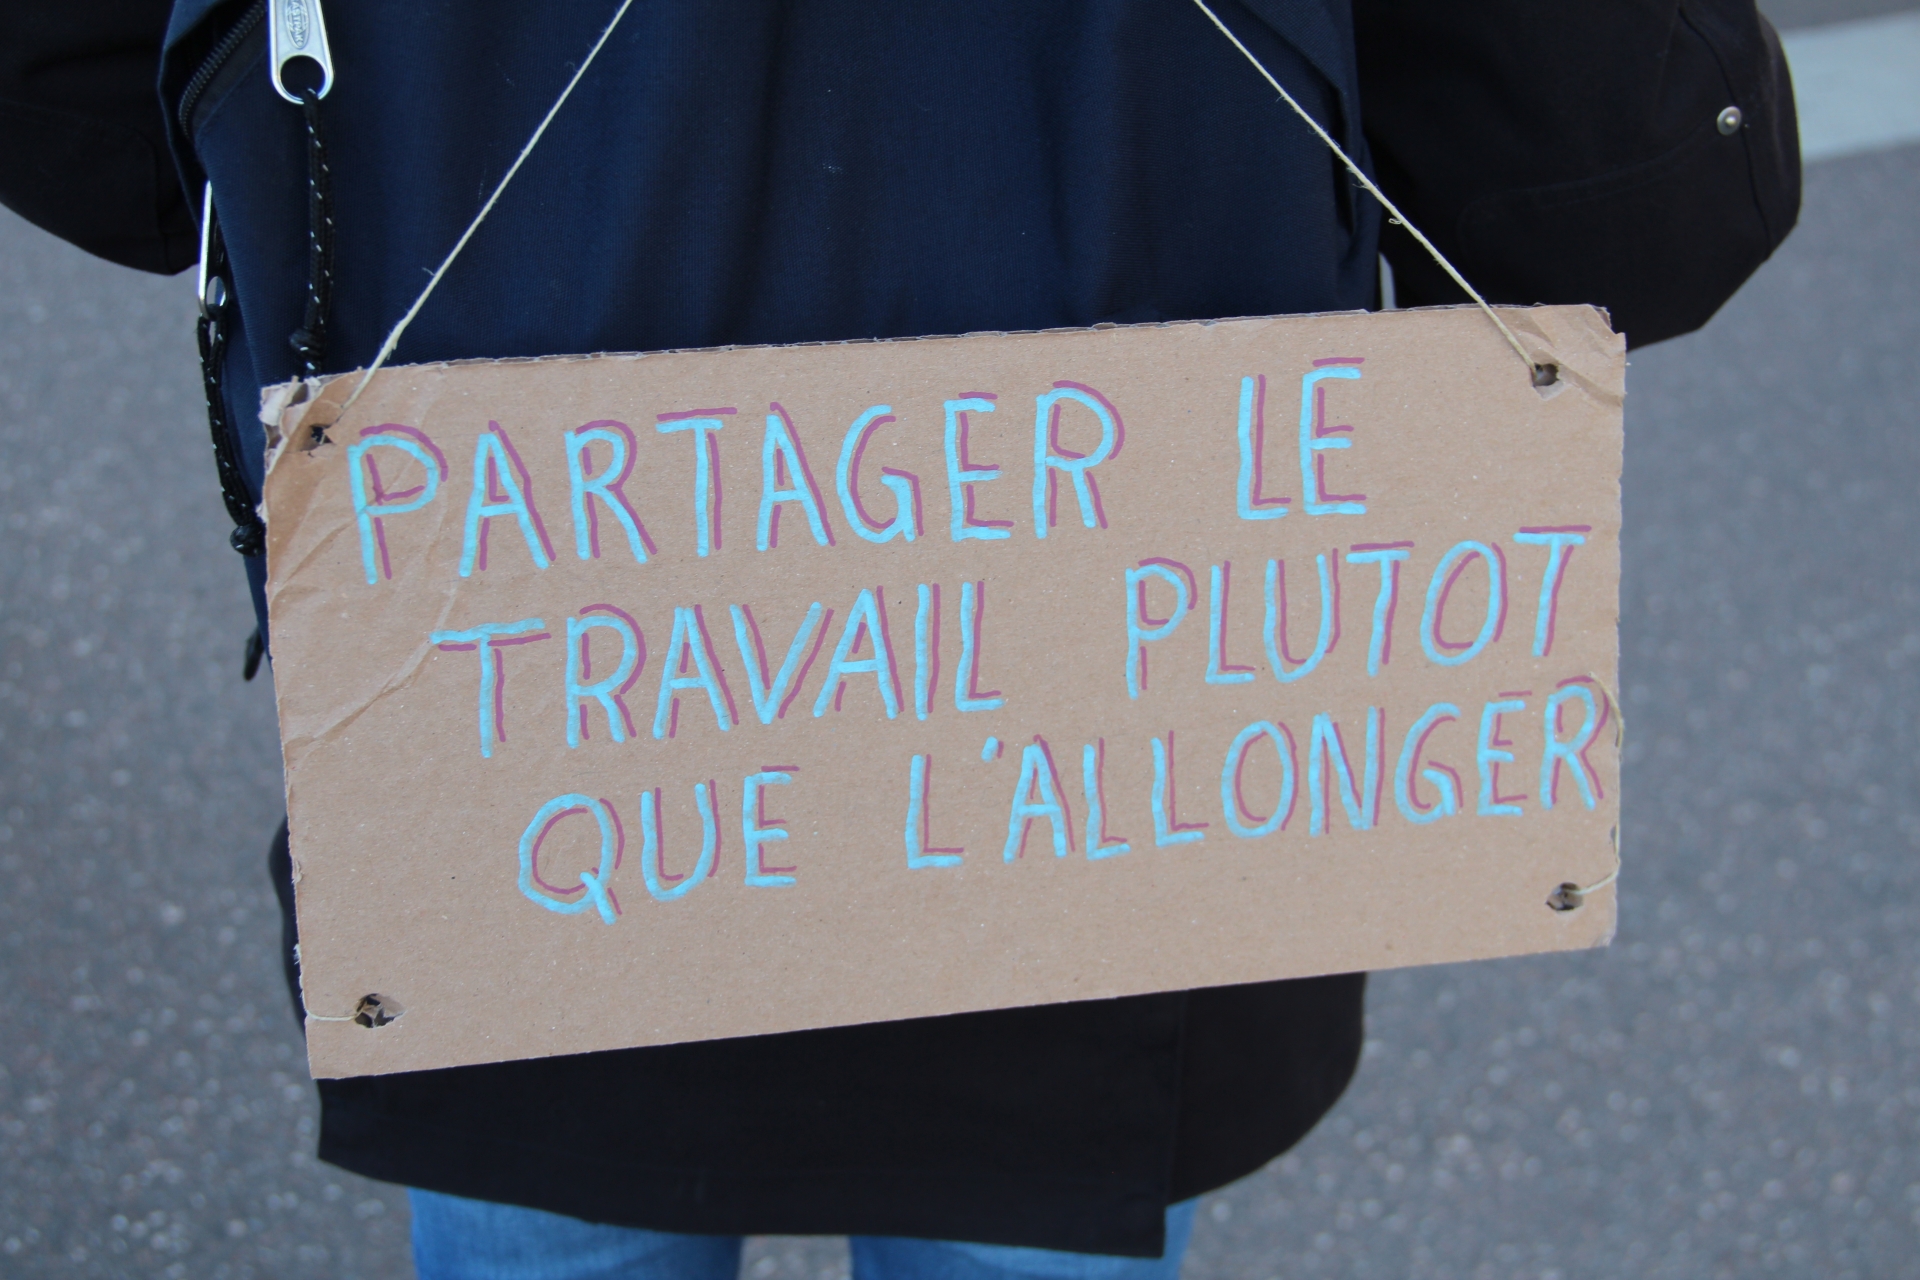 PARTAGER LE
TRAVAIL PLUTOT
QUE L'ALLONGER